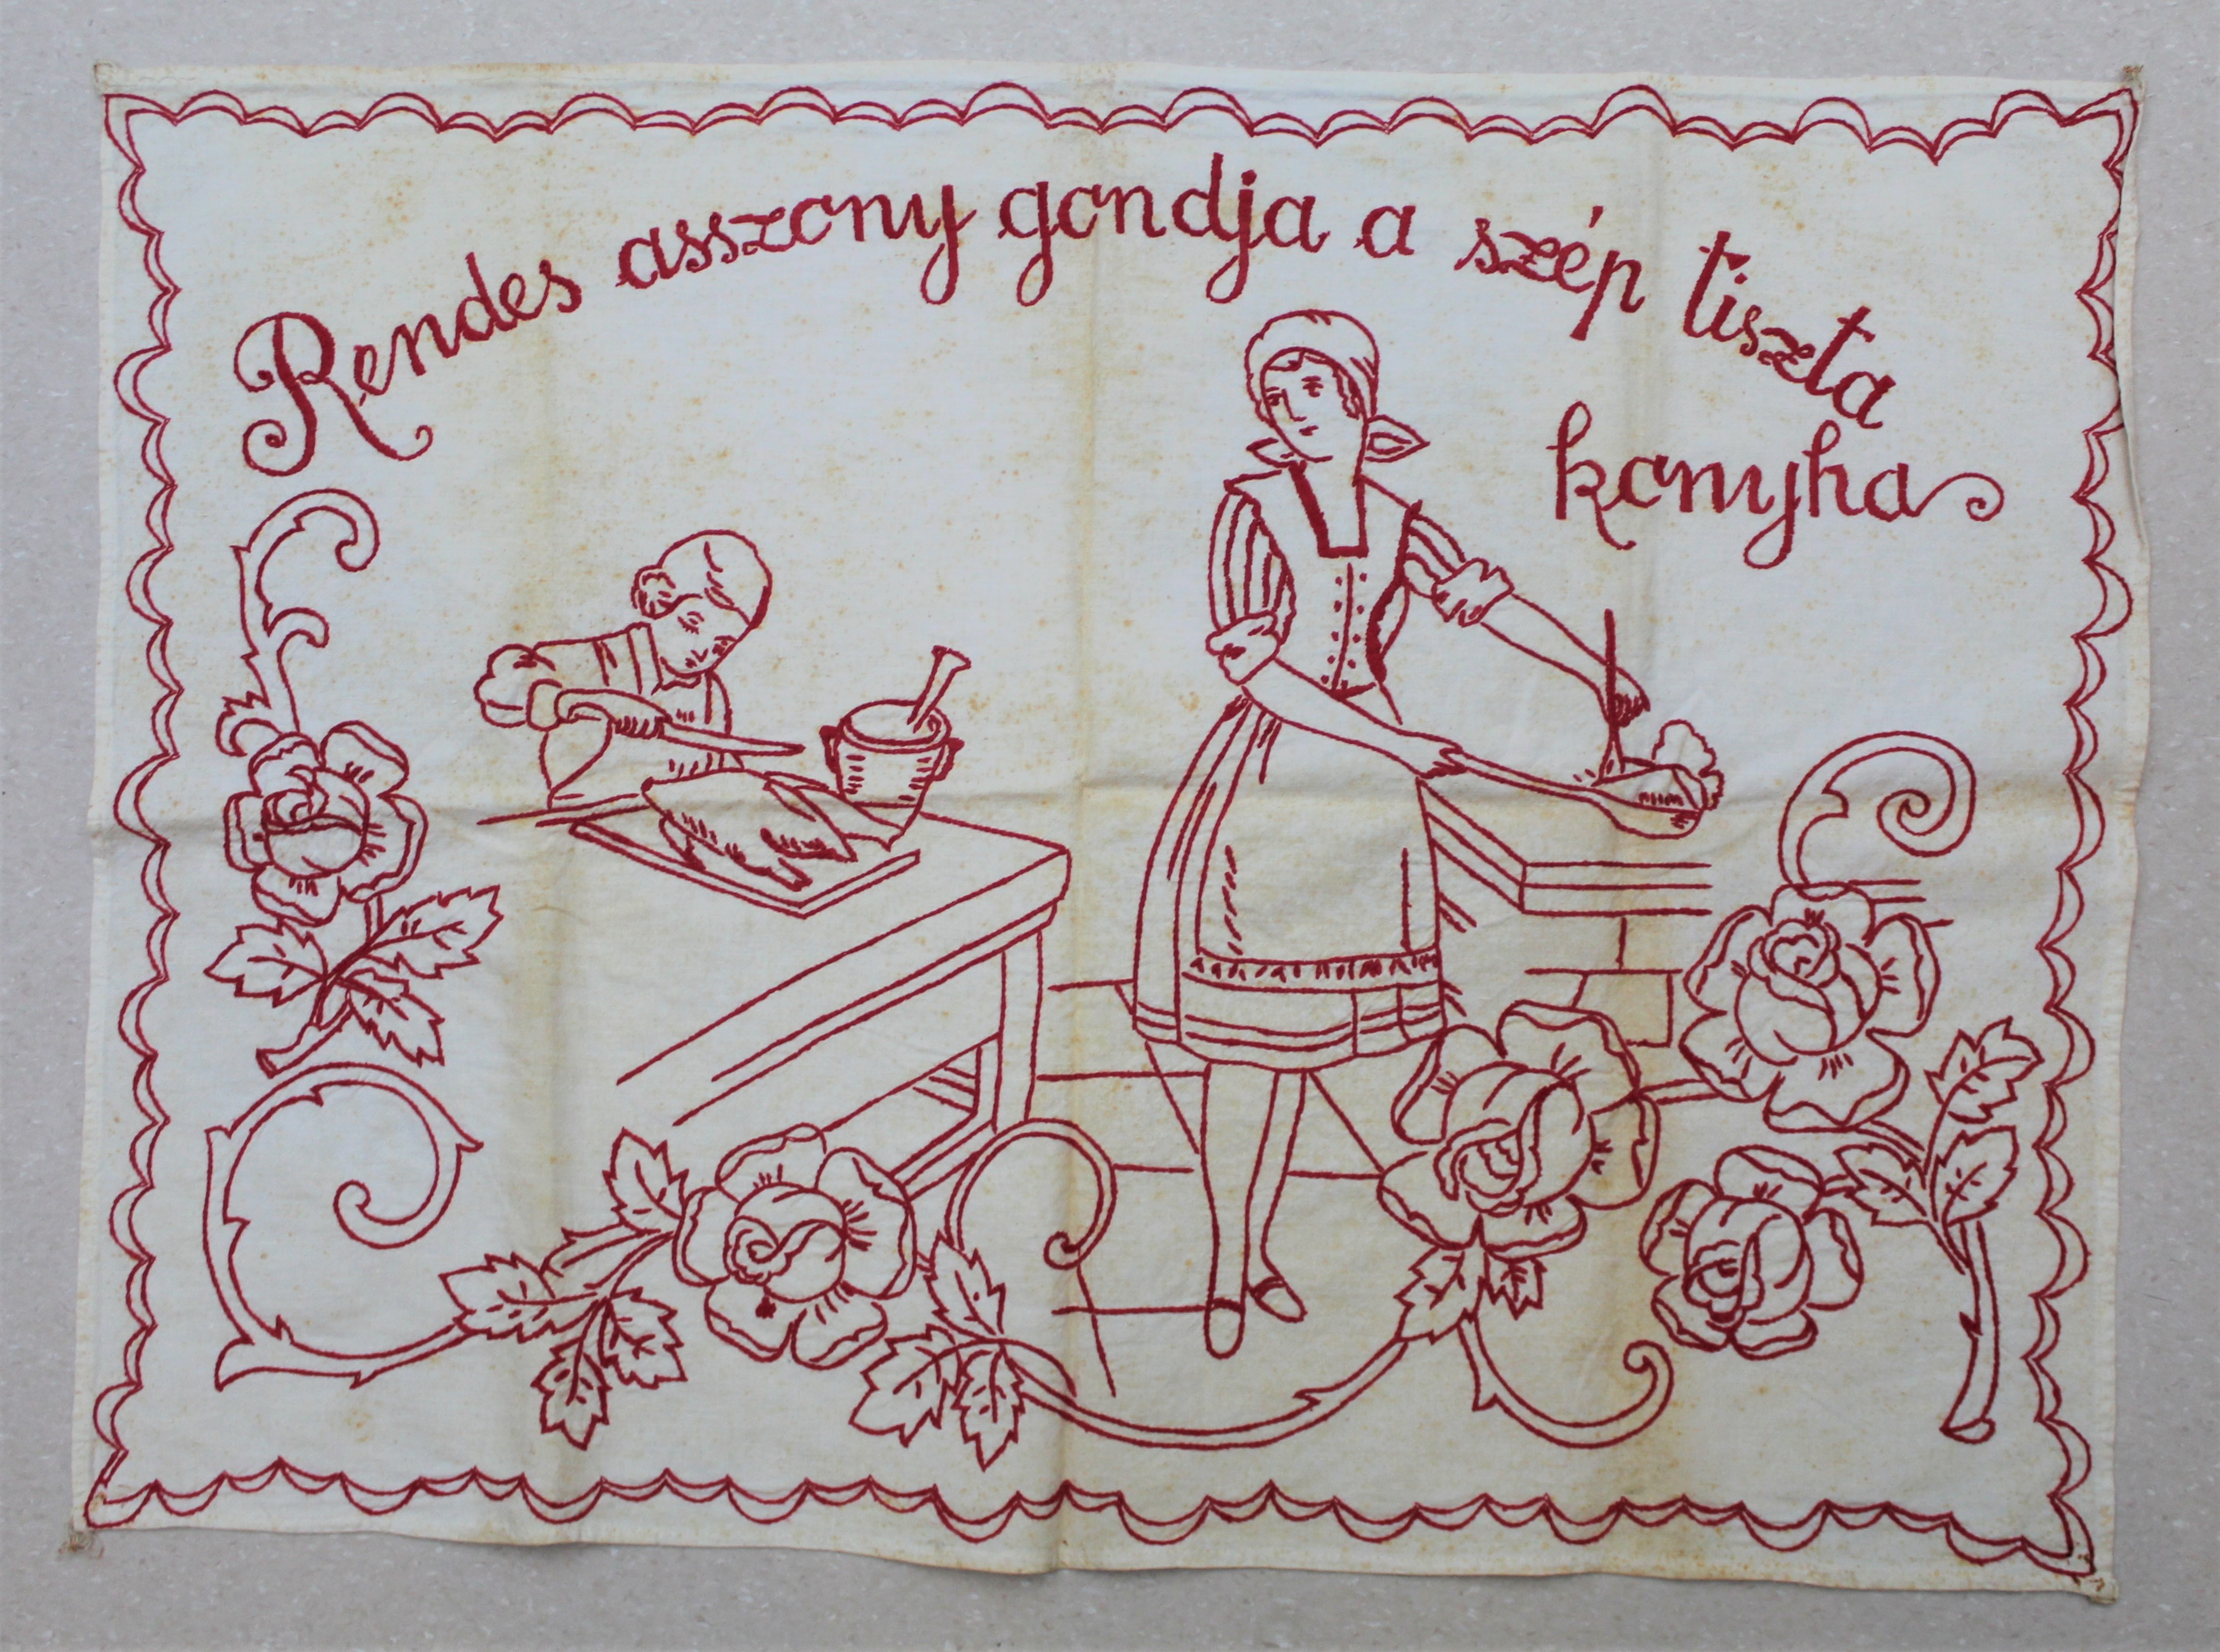 Rendes asszony gondja a szép tiszta
konyha